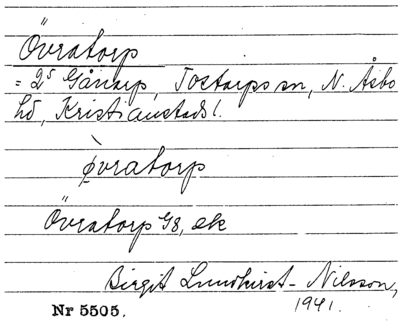 Övratorp
= 2⁵ Gånarp, Tostarps sn, N. Åsbo
hd, Kristianstads l.
ø̀vratorp
Övratorp Gs, ek
Birgit Lundkvist-Nilsson,
1941.
Nr 5505.